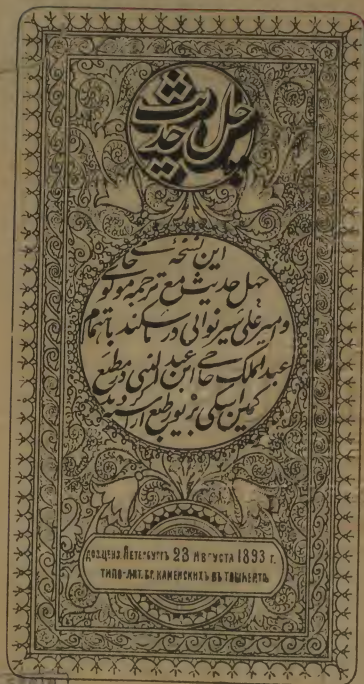 چهل حدیث
این نسخهٔ
چهل حدیث مع ترجمه مولوی
و میر علی شیر نوائی در تاشکند باهتمام
عبدالملک حاجی ابن عبد النبی در مطبع
کمین اسکی بزیور طبع آراسته گردید
ДОЗ.ЦЕНЗ. ПЕТЕРБУРГЪ 23 АВГУСТА 1893 Г.
ТИПО-ЛИТ. БР. КАМЕНСКИХЪ ВЪ ТАШКЕНТѢ.